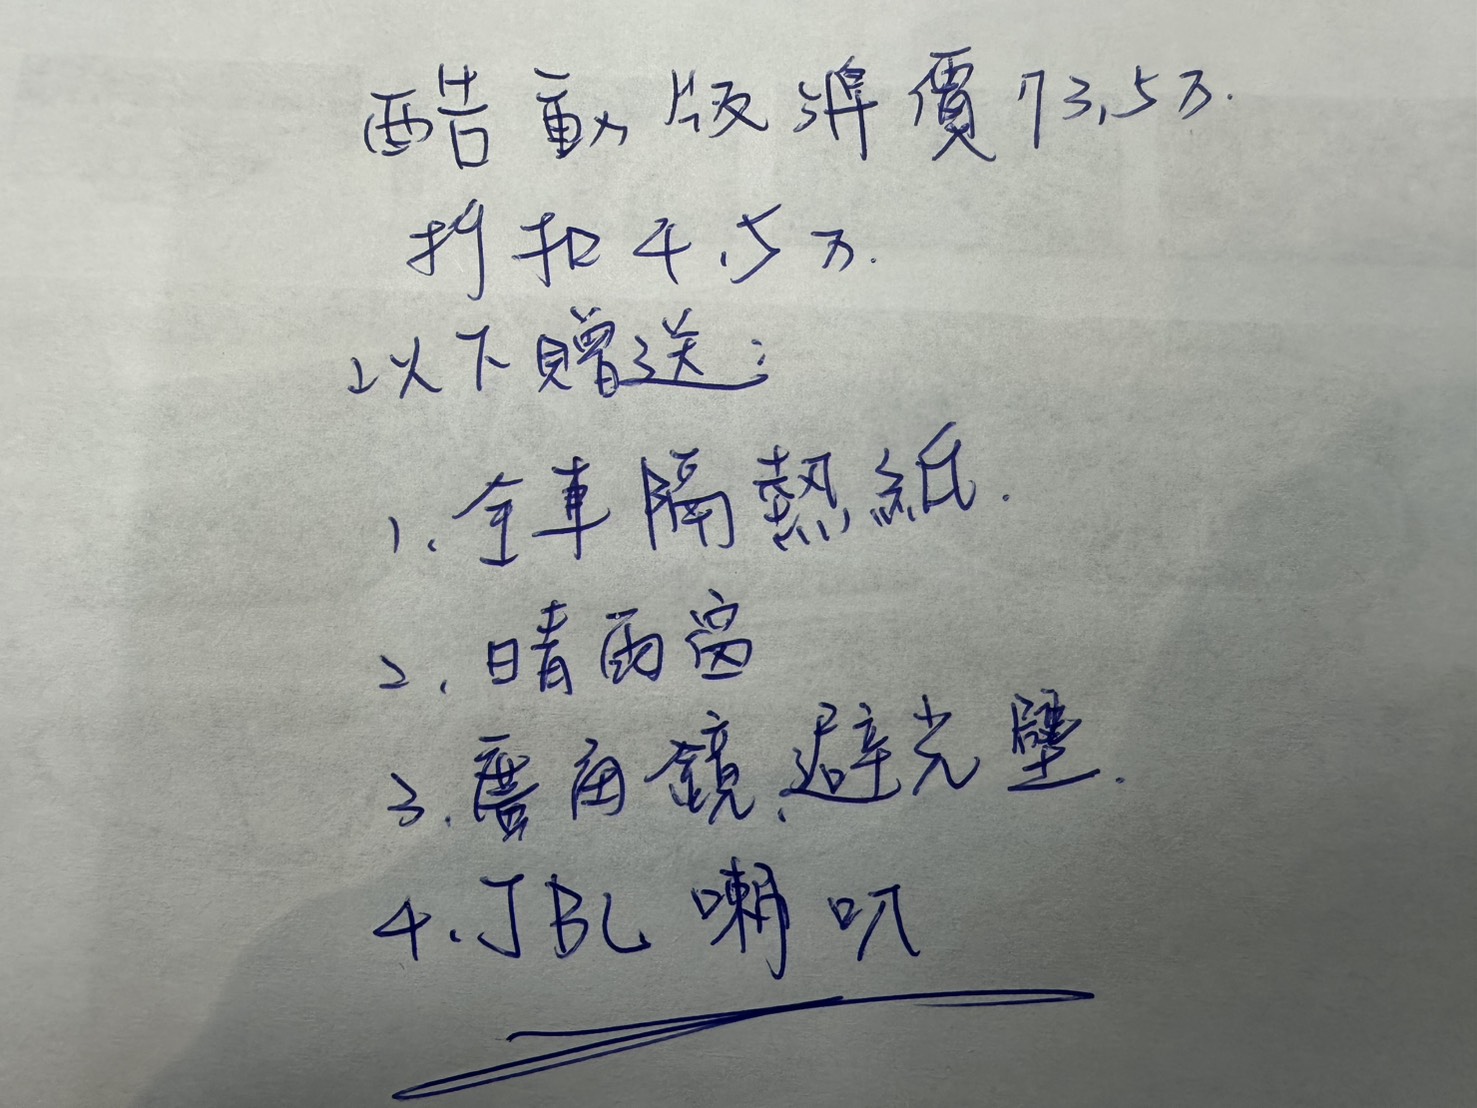 酷動版準價73,5万.
折扣4.5万.
以下贈送:
1.全車隔熱紙.
2.晴雨窗
3.廣角鏡、避光墊.
4.JBL喇叭